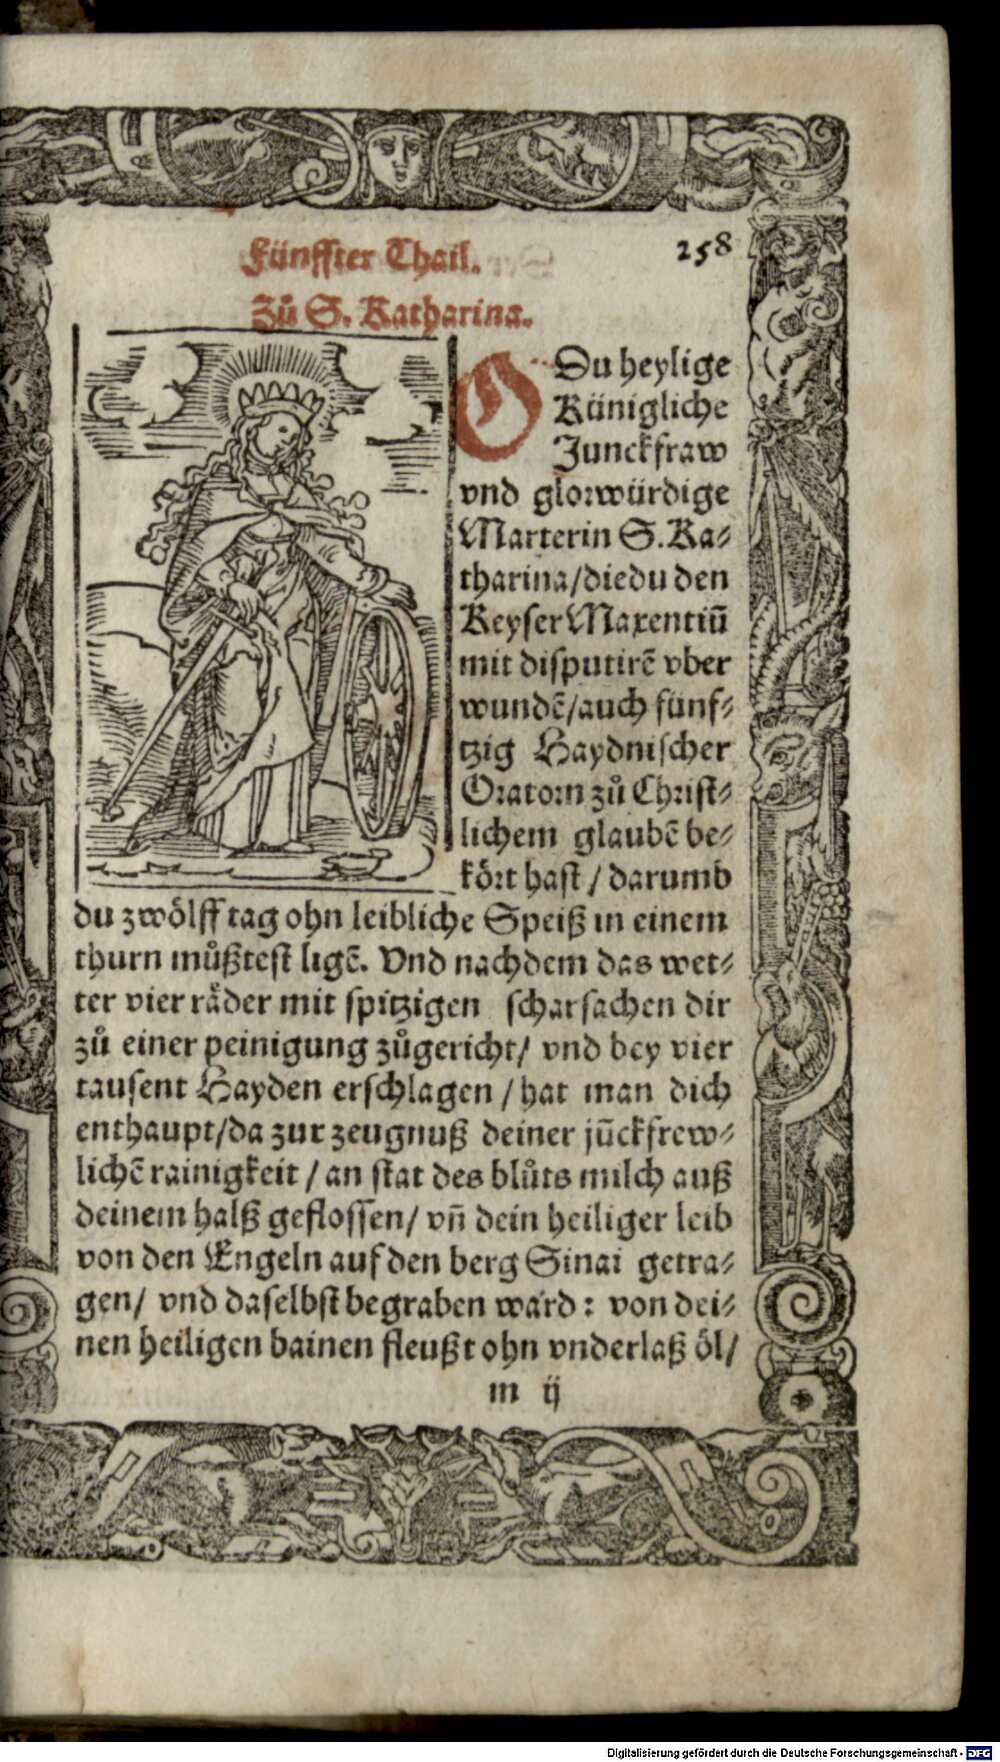 Fünffter Thail.
258
Zů S. Katharina.
O Du heylige
Künigliche
Junckfraw
vnd glorwürdige
Marterin S. Ka-
tharina/die du den
Keyser Maxentiū
mit disputirē vber
wundē/auch fünf-
tzig Haydnischer
Oratorn zů Christ-
lichem glaubē be-
kört hast / darumb
du zwölff tag ohn leibliche Speiß in einem
thurn můßtest ligē. Vnd nachdem das wet-
ter vier räder mit spitzigen scharsachen dir
zů einer peinigung zůgericht/ vnd bey vier
tausent Hayden erschlagen / hat man dich
enthaupt/da zur zeugnuß deiner jūckfrew-
lichē rainigkeit / an stat des blůts milch auß
deinem halß geflossen/ vn̄ dein heiliger leib
von den Engeln auf den berg Sinai getra-
gen/ vnd daselbst begraben ward: von dei-
nen heiligen bainen fleußt ohn vnderlaß öl/
m ij
Digitalisierung gefördert durch die Deutsche Forschungsgemeinschaft - DFG